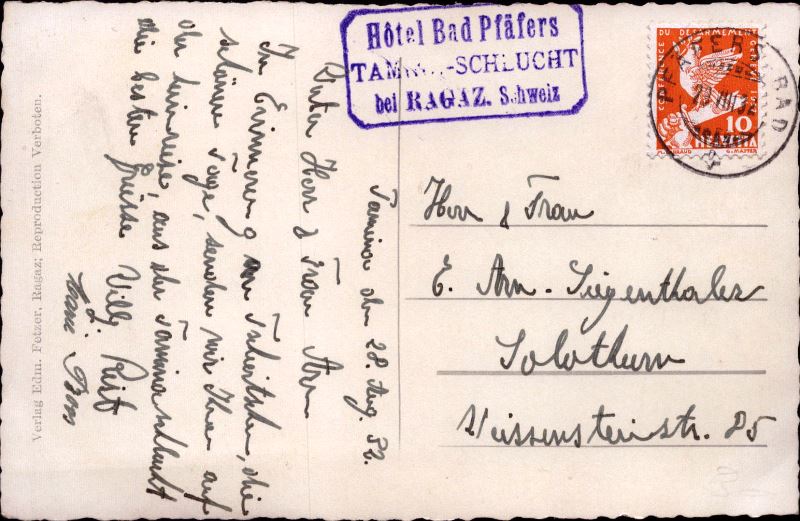 Hôtel Bad Pfäfers
TAMINA-SCHLUCHT
bei RAGAZ. Schweiz
CONFERENCE DU DESARMEMENT GENEVE
10
HELVETIA
PFÄFERS BAD
Tamina den 28. Aug. 32.
Guter Herr & Frau Arn
In Erinnerung an Tschertschen, die
schönen Tage, senden wir Ihnen auf
der Heimreise, aus der Taminaschlucht
die besten Grüsse Willy Reif
Herr & Frau
E. Arn-Siegenthaler
Solothurn
Weissensteinstr. 85
Verlag Edm. Fetzer, Ragaz; Reproduction Verboten.